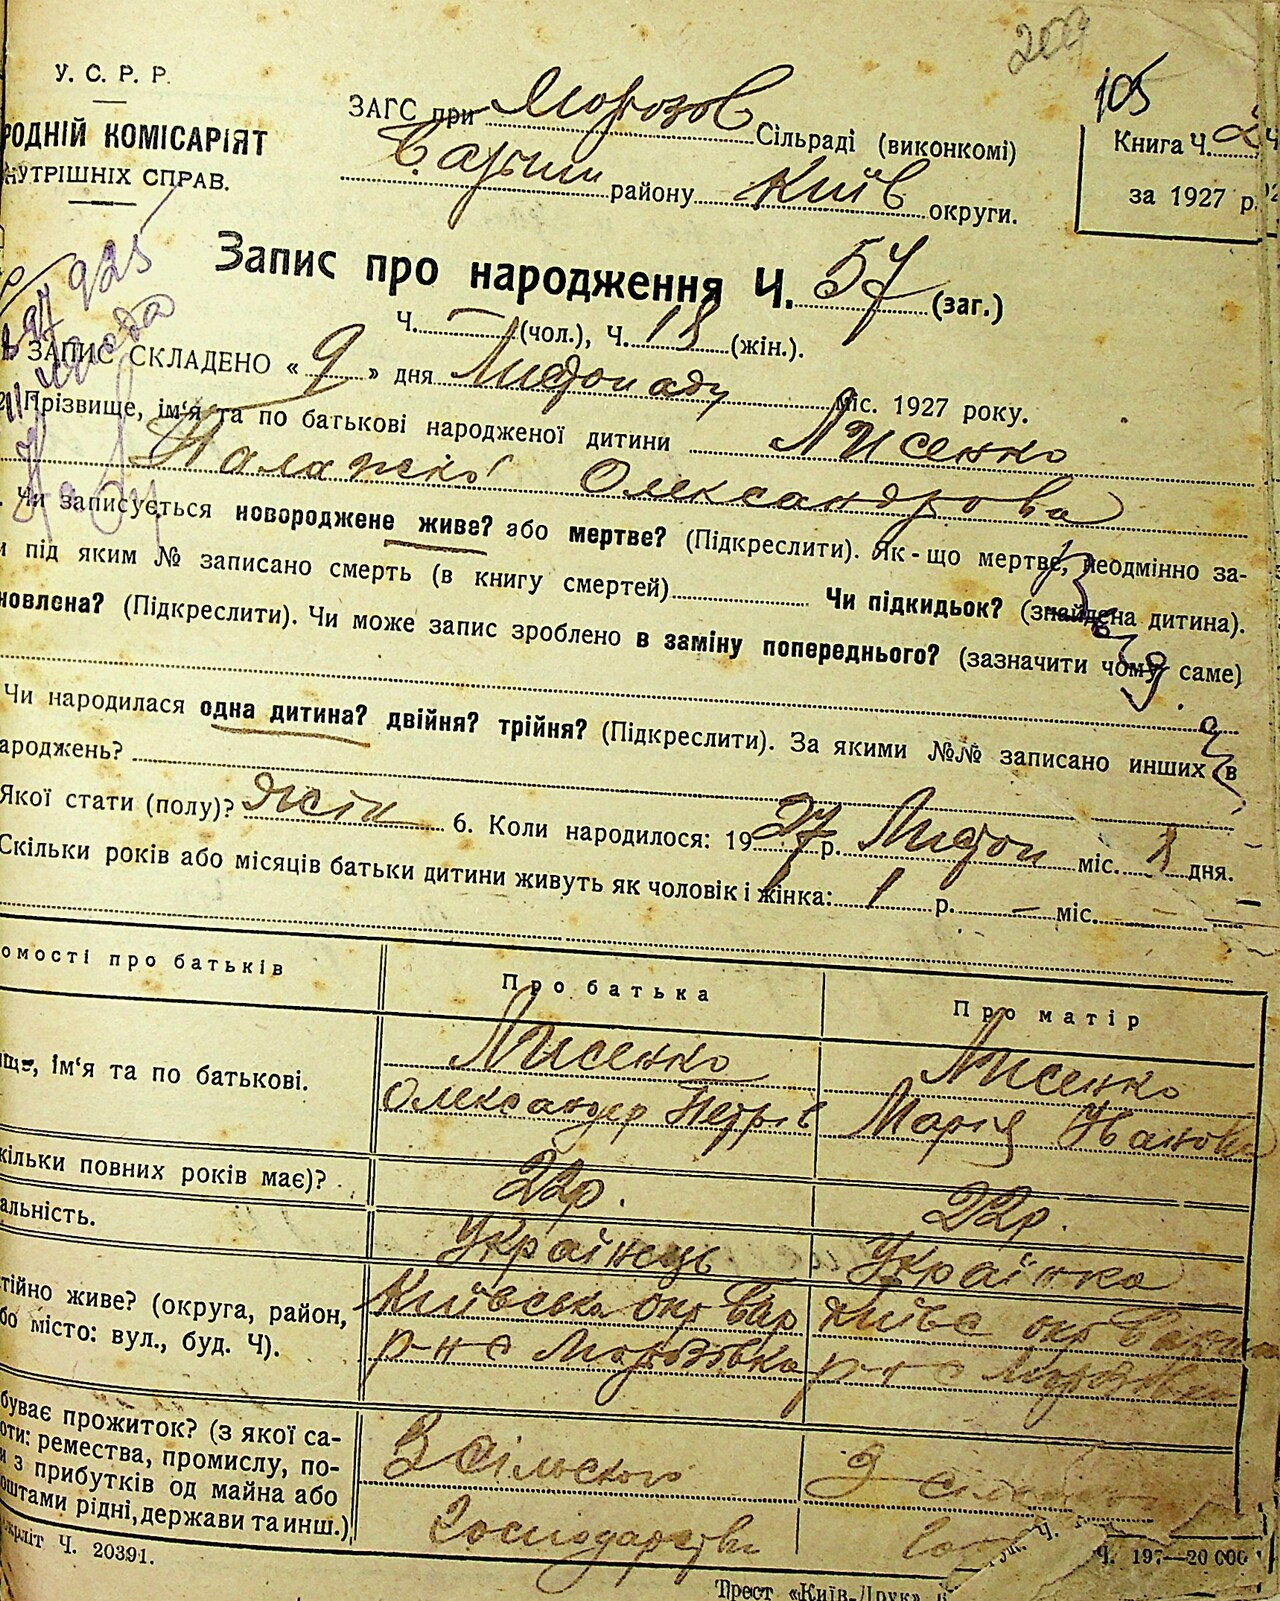 209
105
У. С. Р. Р.
РОДНІЙ КОМІСАРІЯТ
НУТРІШНІХ СПРАВ.
ЗАГС при Морозов Сільраді (виконкомі)
району Київ округи.
Книга Ч. 2
за 1927 р.
Запис про народження Ч. 57 (заг.)
Ч. — (чол.), Ч. 18 (жін.).
ЗАПИС СКЛАДЕНО « 9 » дня Листопаду міс. 1927 року.
Прізвище, ім'я та по батькові народженої дитини Лисенко
Палажка Олександрова
Чи записується новороджене живе? або мертве? (Підкреслити). Як-що мертве, неодмінно за-
и під яким № записано смерть (в книгу смертей) Чи підкидьок? (знайдена дитина).
новлена? (Підкреслити). Чи може запис зроблено в заміну попереднього? (зазначити чому саме)
Чи народилася одна дитина? двійня? трійня? (Підкреслити). За якими №№ записано инших в
ароджень?
Якої стати (полу)? 6. Коли народилося: 1927 р. Листоп міс. дня.
Скільки років або місяців батьки дитини живуть як чоловік і жінка: 1 р. — міс.
омості про батьків
Про батька
Про матір
ще, ім'я та по батькові.
Лисенко
Олександер Петрів
Лисенко
Марія Іванова
кільки повних років має)?
22р.
22р.
альність.
Українець
Українка
тійно живе? (округа, район,
бо місто: вул., буд. Ч).
Київська окр Бар
р-н с Морозовка
Київс окр
р-н с Морозовка
буває прожиток? (з якої са-
оти: ремества, промислу, по-
и з прибутків од майна або
оштами рідні, держави та инш.)
З сільского
Господарства
З сільского
Го
Ч. 20391.
Ч. 197—20 000
Трест «Київ-Друк»